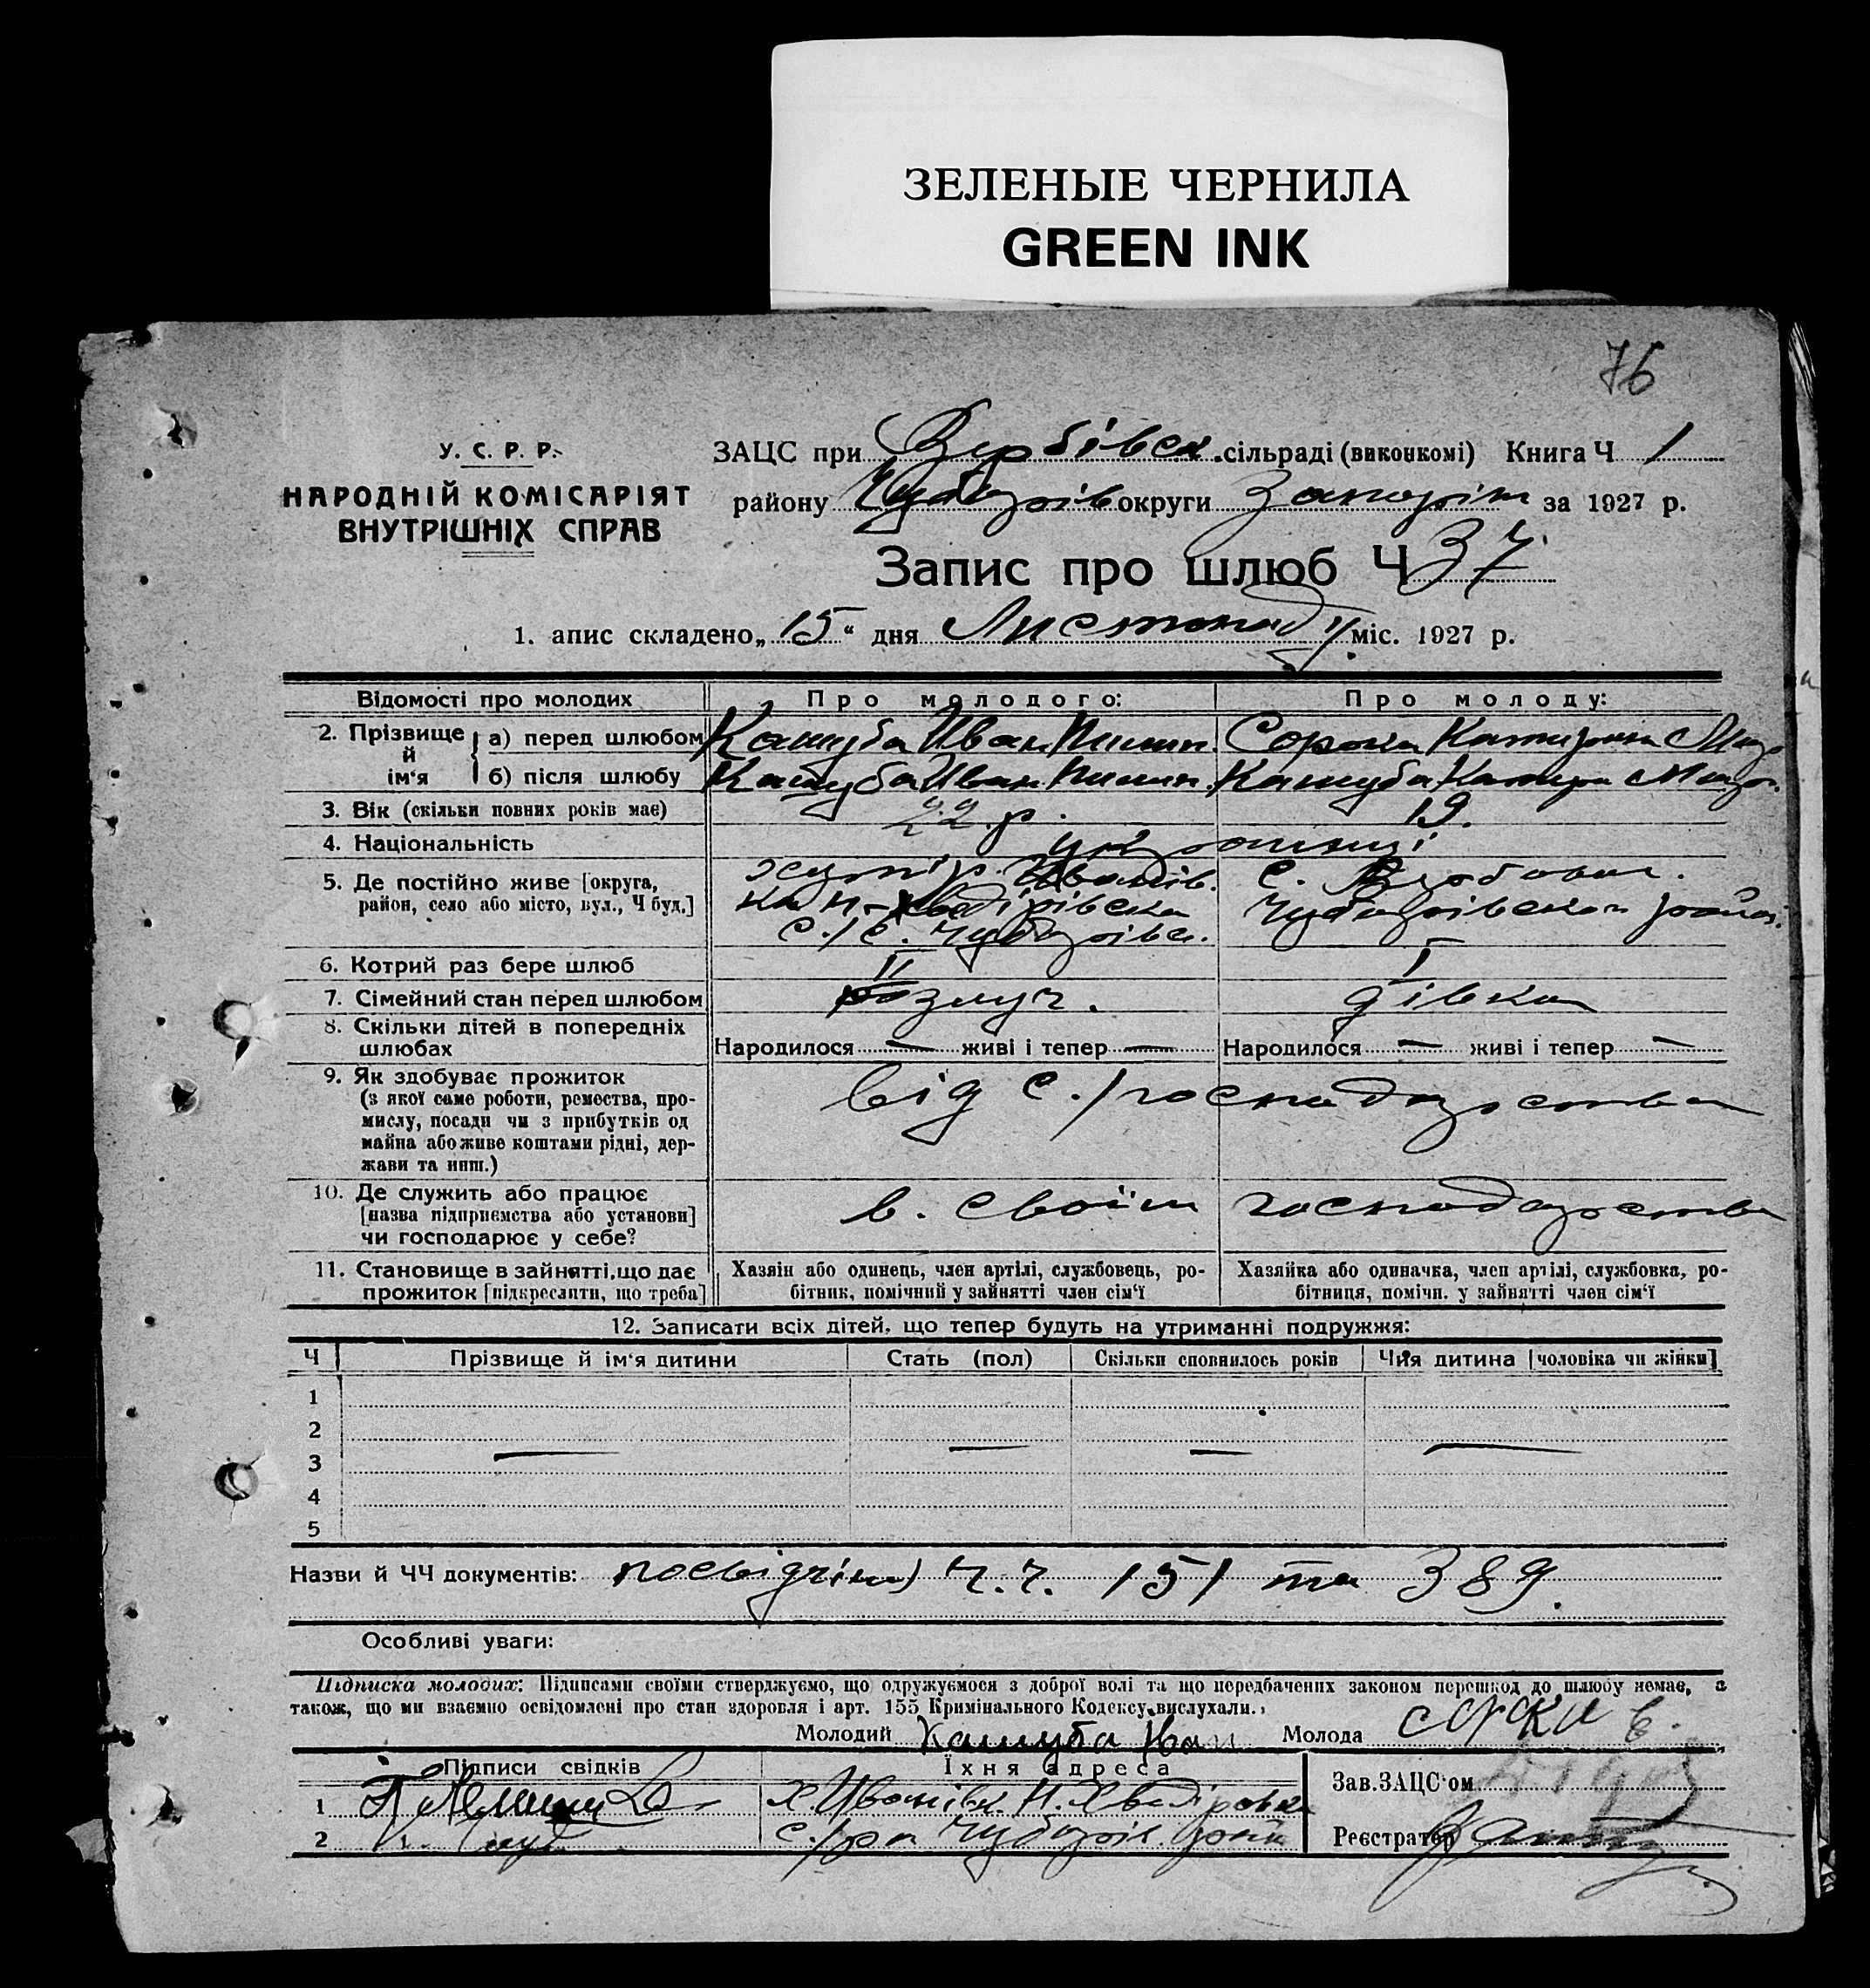 ЗЕЛЕНЫЕ ЧЕРНИЛА
GREEN INK
76
У. С. Р. Р.
НАРОДНІЙ КОМІСАРІЯТ
ВНУТРІШНІХ СПРАВ
ЗАЦС при Вербівск. сільраді (виконкомі) Книга Ч 1
району Чубарів округи Запоріж за 1927 р.
Запис про шлюб Ч 37
1. апис складено „15“ дня Листопаду міс. 1927 р.
Відомості про молодих Про молодого: Про молоду:
2. Прізвище й ім‘я
а) перед шлюбом Кашуба Иван Пилип. Сорока Катерина
б) після шлюбу Кашуба Иван Пилип. Кашуба Катер
3. Вік (скільки повних років має) 22 р. 19.
4. Національність українці
5. Де постійно живе [округа, район, село або місто, вул., Ч буд.]
хутір. Иванів.
с/с. Чубарівс.
с. Вербове.
Чубарівського район.
6. Котрий раз бере шлюб II I
7. Сімейний стан перед шлюбом розлуч. дівка
8. Скільки дітей в попередніх шлюбах Народилося — живі і тепер — Народилося — живі і тепер —
9. Як здобуває прожиток
(з якої саме роботи, ремества, про-
мислу, посади чи з прибутків од
майна або живе коштами рідні, дер-
жави та инш.)
від с./господарства
10. Де служить або працює
[назва підприємства або установи]
чи господарює у себе?
в. своїм господарстві
11. Становище в зайнятті, що дає
прожиток [підкреслити, що треба]
Хазяін або одинець, член артілі, службовець, ро-
бітник, помічний у зайнятті член сім‘ї
Хазяйка або одиначка, член артілі, службовка, ро-
бітниця, помічн. у зайнятті член сім‘ї
12. Записати всіх дітей, що тепер будуть на утриманні подружжя:
Ч Прізвище й ім‘я дитини Стать (пол) Скільки сповнилось років Чия дитина [чоловіка чи жінки]
1
2
3 — — — —
4
5
Назви й ЧЧ документів: посвідчін ч.ч. 151 та 389.
Особливі уваги:
Підписка молодих: Підписами своїми стверджуємо, що одружуємося з доброї волі та що передбачених законом перешкод до шлюбу немає, а
також, що ми взаємно освідомлені про стан здоровля і арт. 155 Кримінального Кодексу вислухали.
Молодий Кашуба Иван Молода
Підписи свідків Їхня адреса
Зав. ЗАЦС‘ом
1 Х. Иванівк. Н.
2 с./ра Чубарів. рай
Реєстратор